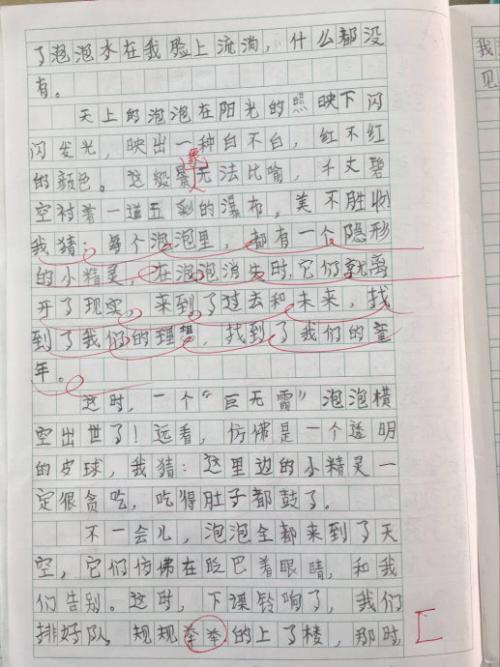 了泡泡水在我脸上流淌，什么都没
有。
天上的泡泡在阳光的照映下闪
闪发光，映出一种白不白，红不红
的颜色。这般景无法比喻，千丈碧
空对着一道五彩的瀑布，美不胜收
我猜：每个泡泡里，都有一个隐形
的小精灵，在泡泡消失时，它们就离
开了现实。来到了过去和未来，找
到了我们的理想，找到了我们的童
年。
这时，一个“巨无霸”泡泡横
空出世了！远看，仿佛是一个透明
的皮球，我猜：这里边的小精灵一
定很贪吃，吃得肚子都鼓了。
不一会儿，泡泡全都来到了天
空，它们仿佛在眨巴着眼睛，和我
们告别。这时，下课铃响了，我们
排好队，规规挙挙的上了楼，那时
我
见